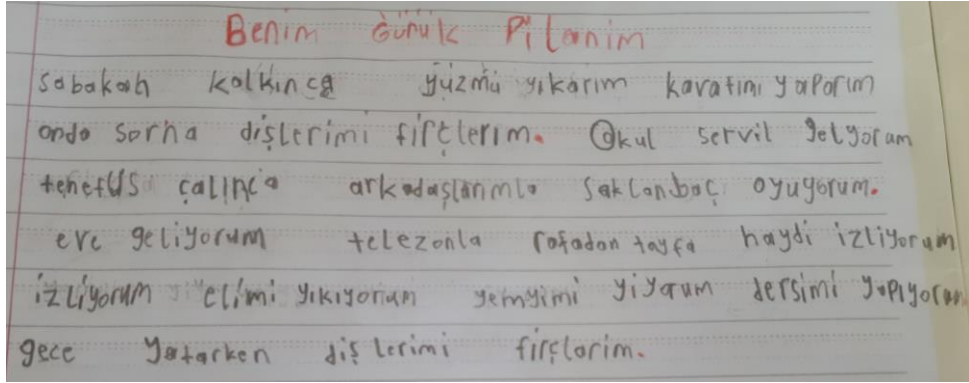 Benim Günük Pilanim
sabakah kalkınca yüzmü yıkarım kavatimi yaparım
ondo sorna dişlerimi fırçlerim. Okul servil gelyoram
tenefüs çalınca arkadaşlarımla saklanbaç oyuyorum.
eve geliyorum telezonla rafadan tayfa haydi izliyorum
izliyorum elimi yıkıyorum yemyimi yiyorum dersimi yapıyorum
gece yatarken dişlerimi firçlarim.